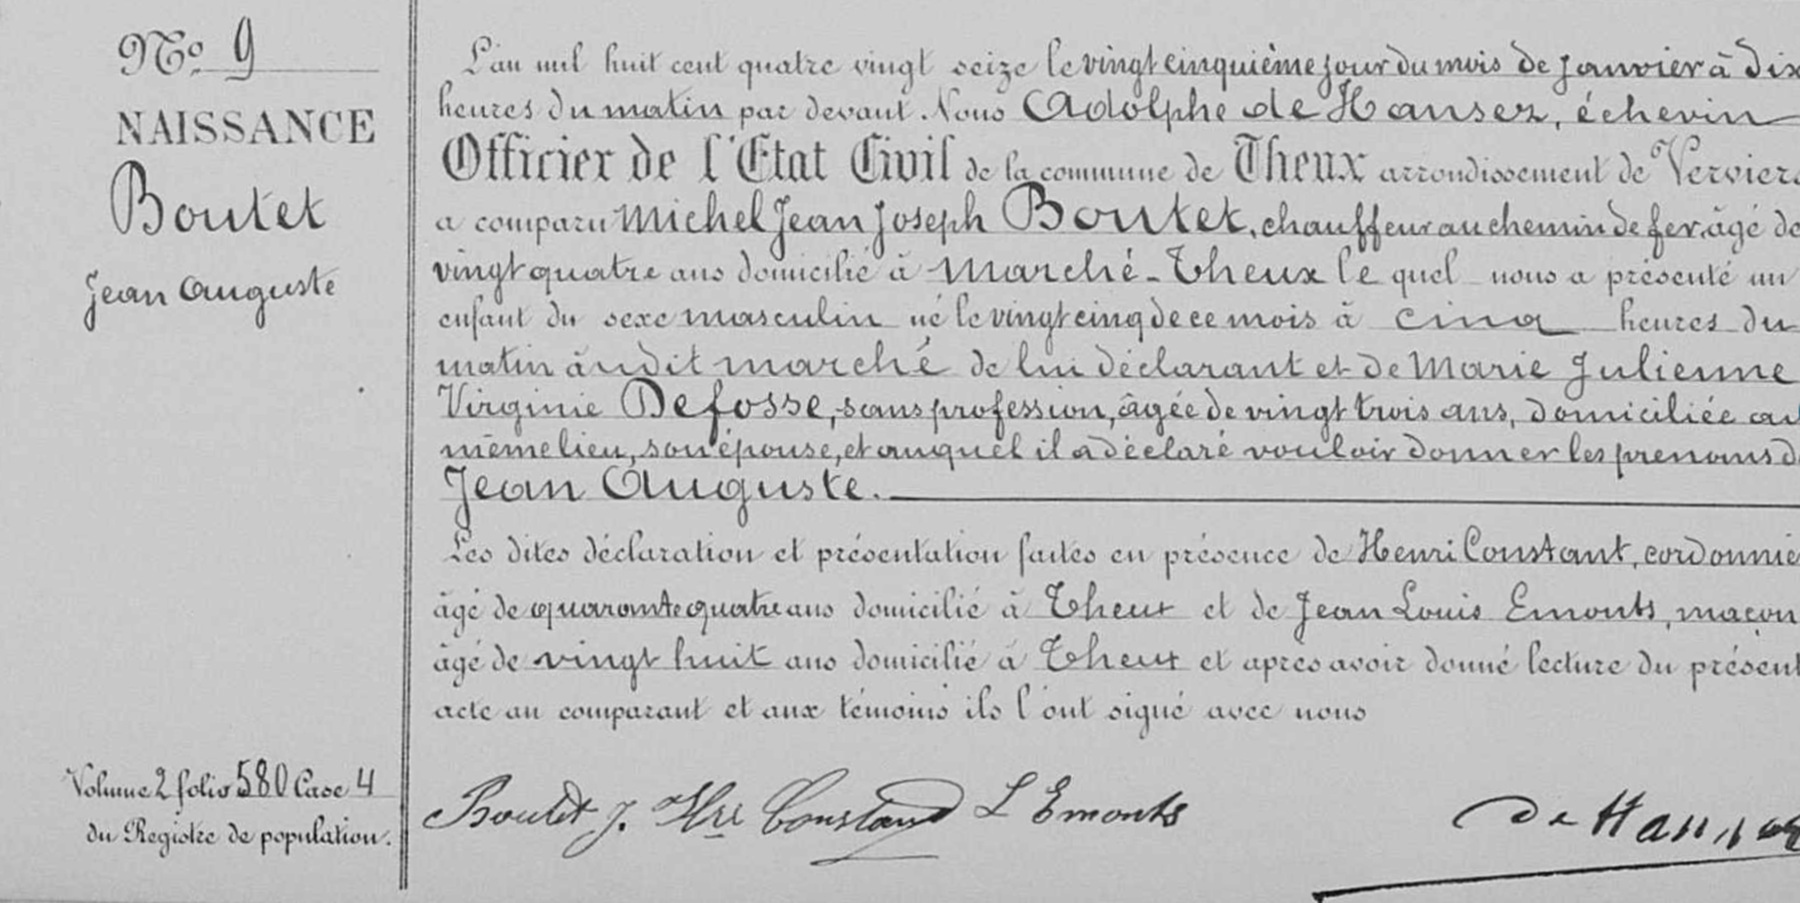 No 9
NAISSANCE
Boutet
Jean Auguste
Volume 2 folio 580 Case 4
du Registre de population.
L'an mil huit cent quatre vingt seize le vingt cinquième jour du mois de Janvier à dix
heures du matin par devant Nous Adolphe de Hansez, échevin
Officier de l'Etat Civil de la commune de Theux arrondissement de Verviers
a comparu Michel Jean Joseph Boutet, chauffeur au chemin de fer, âgé de
vingt quatre ans domicilié à Marché-Theux le quel nous a présenté un
enfant du sexe masculin né le vingt cinq de ce mois à cinq heures du
matin àudit marché de lui déclarant et de Marie Julienne
Virginie Defosse, sans profession, âgée de vingt trois ans, domiciliée au
même lieu, son épouse, et auquel il a déclaré vouloir donner les prenoms d
Jean Auguste.
Les dites déclaration et présentation faites en présence de Henri Constant, cordonnie
âgé de quarante quatre ans domicilié à Theux et de Jean Louis Emonts, maçon
âgé de vingt huit ans domicilié à Theux et apres avoir donné lecture du présent
acte au comparant et aux témoins ils l'ont signé avec nous
Boutet J. Hri Constant L Emonts de Hansez